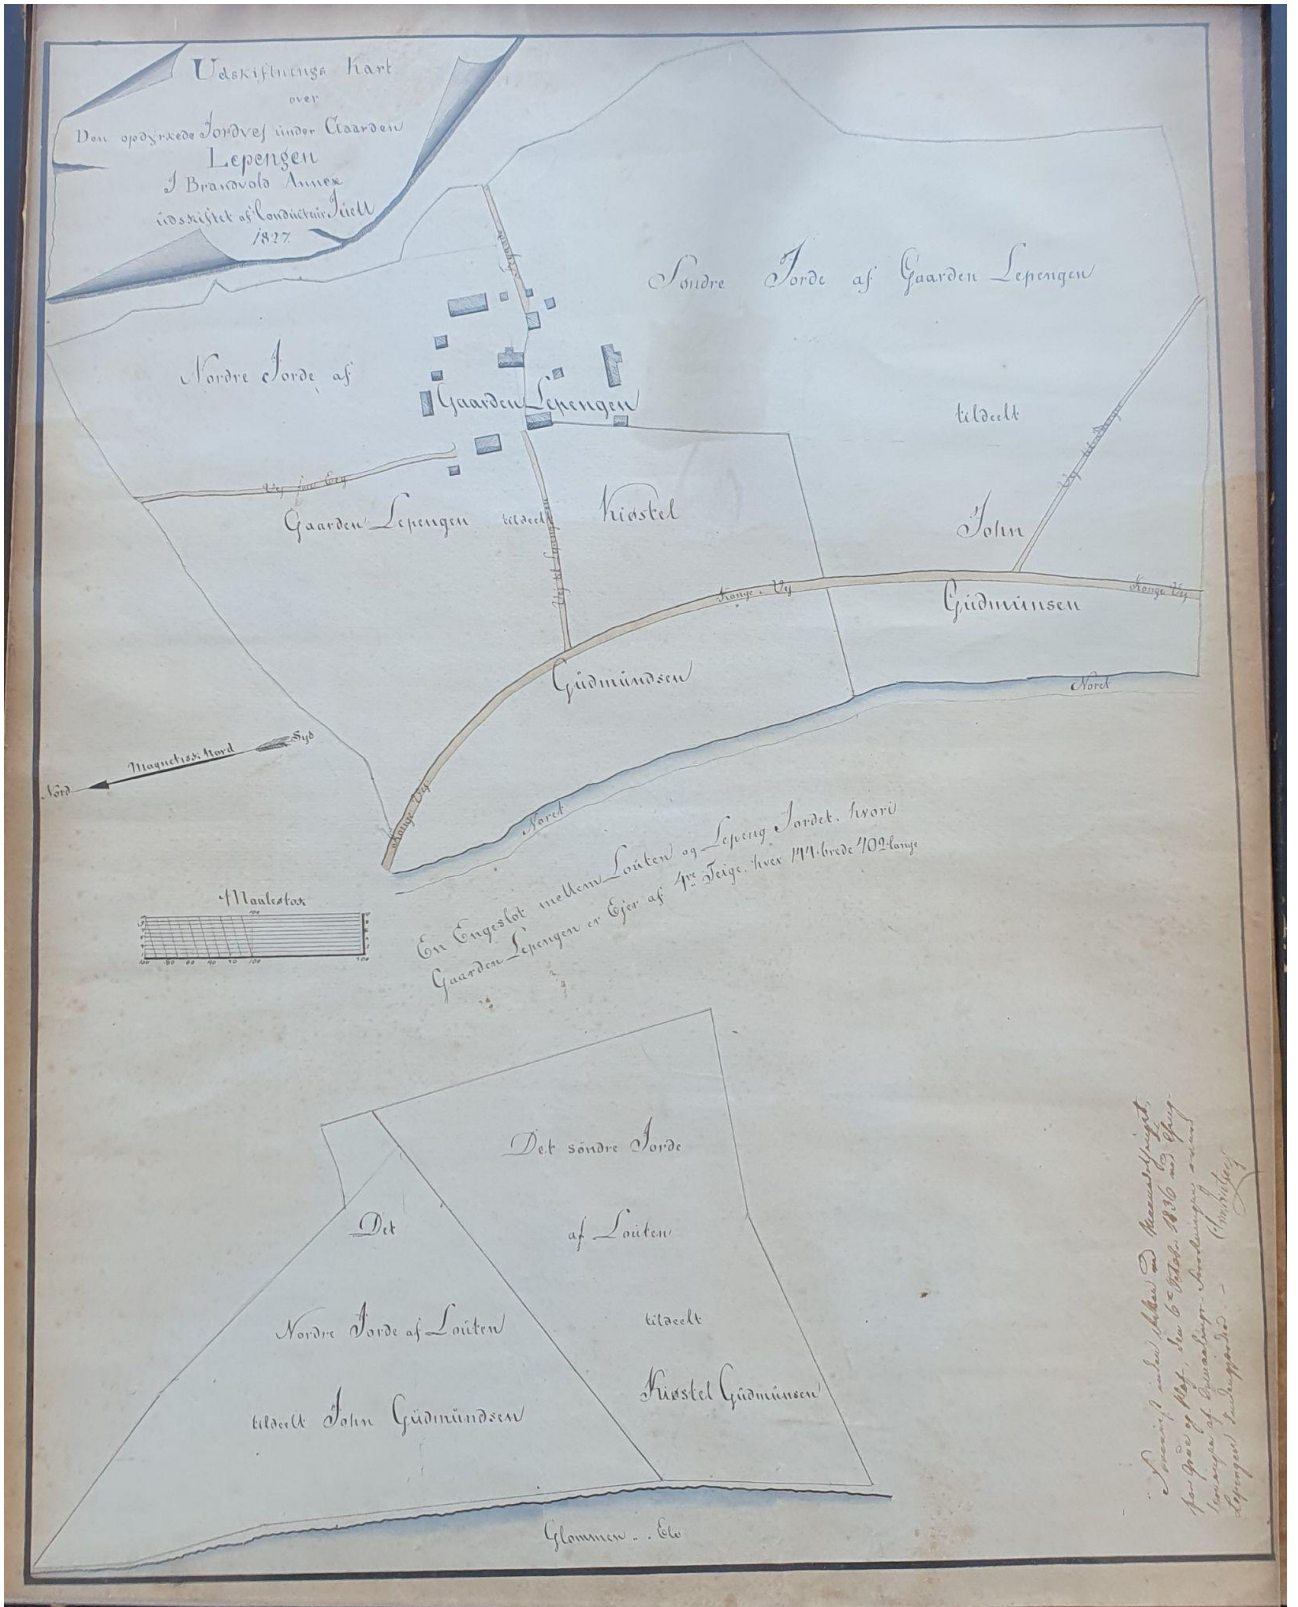 Udskiftnings Kart
over
Den opdyrkede Jordvej ünder Gaarden
Lepengen
I Brandvold Annex
üdskiftet af Conductuir Jüell
1827.
Søndre Jorde af Gaarden Lepengen
Nordre Jorde af
Gaarden Lepengen
tildeelt
Vej
Gaarden Lepengen tildeelt Kiøstel
John
Konge Vej
Konge Vej
Güdmünsen
Güdmündsen
Noret
Syd
Magnetisk Nord
Nord
Konge Vej
Noret
En Engeslot mellem Loüten og Lepeng Jordet, hvori
Gaarden Lepengen er Ejer af 4re Teige, hver 144 brede 402 lange
Maalestok
Det søndre Jorde
Det
af Loüten
Nordre Jorde af Loüten
tildeelt
Kiøstel Güdmünsen
tildeelt John Güdmündsen
Glommen Elv
den 6te 1836
Lepengen